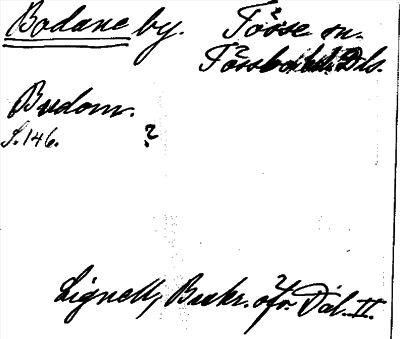 Bodane by. Tösse sn.
Tössbo hd. Dls.
Budom.
S. 146. ?
Lignell, Beskr. öfv. Dal. II.